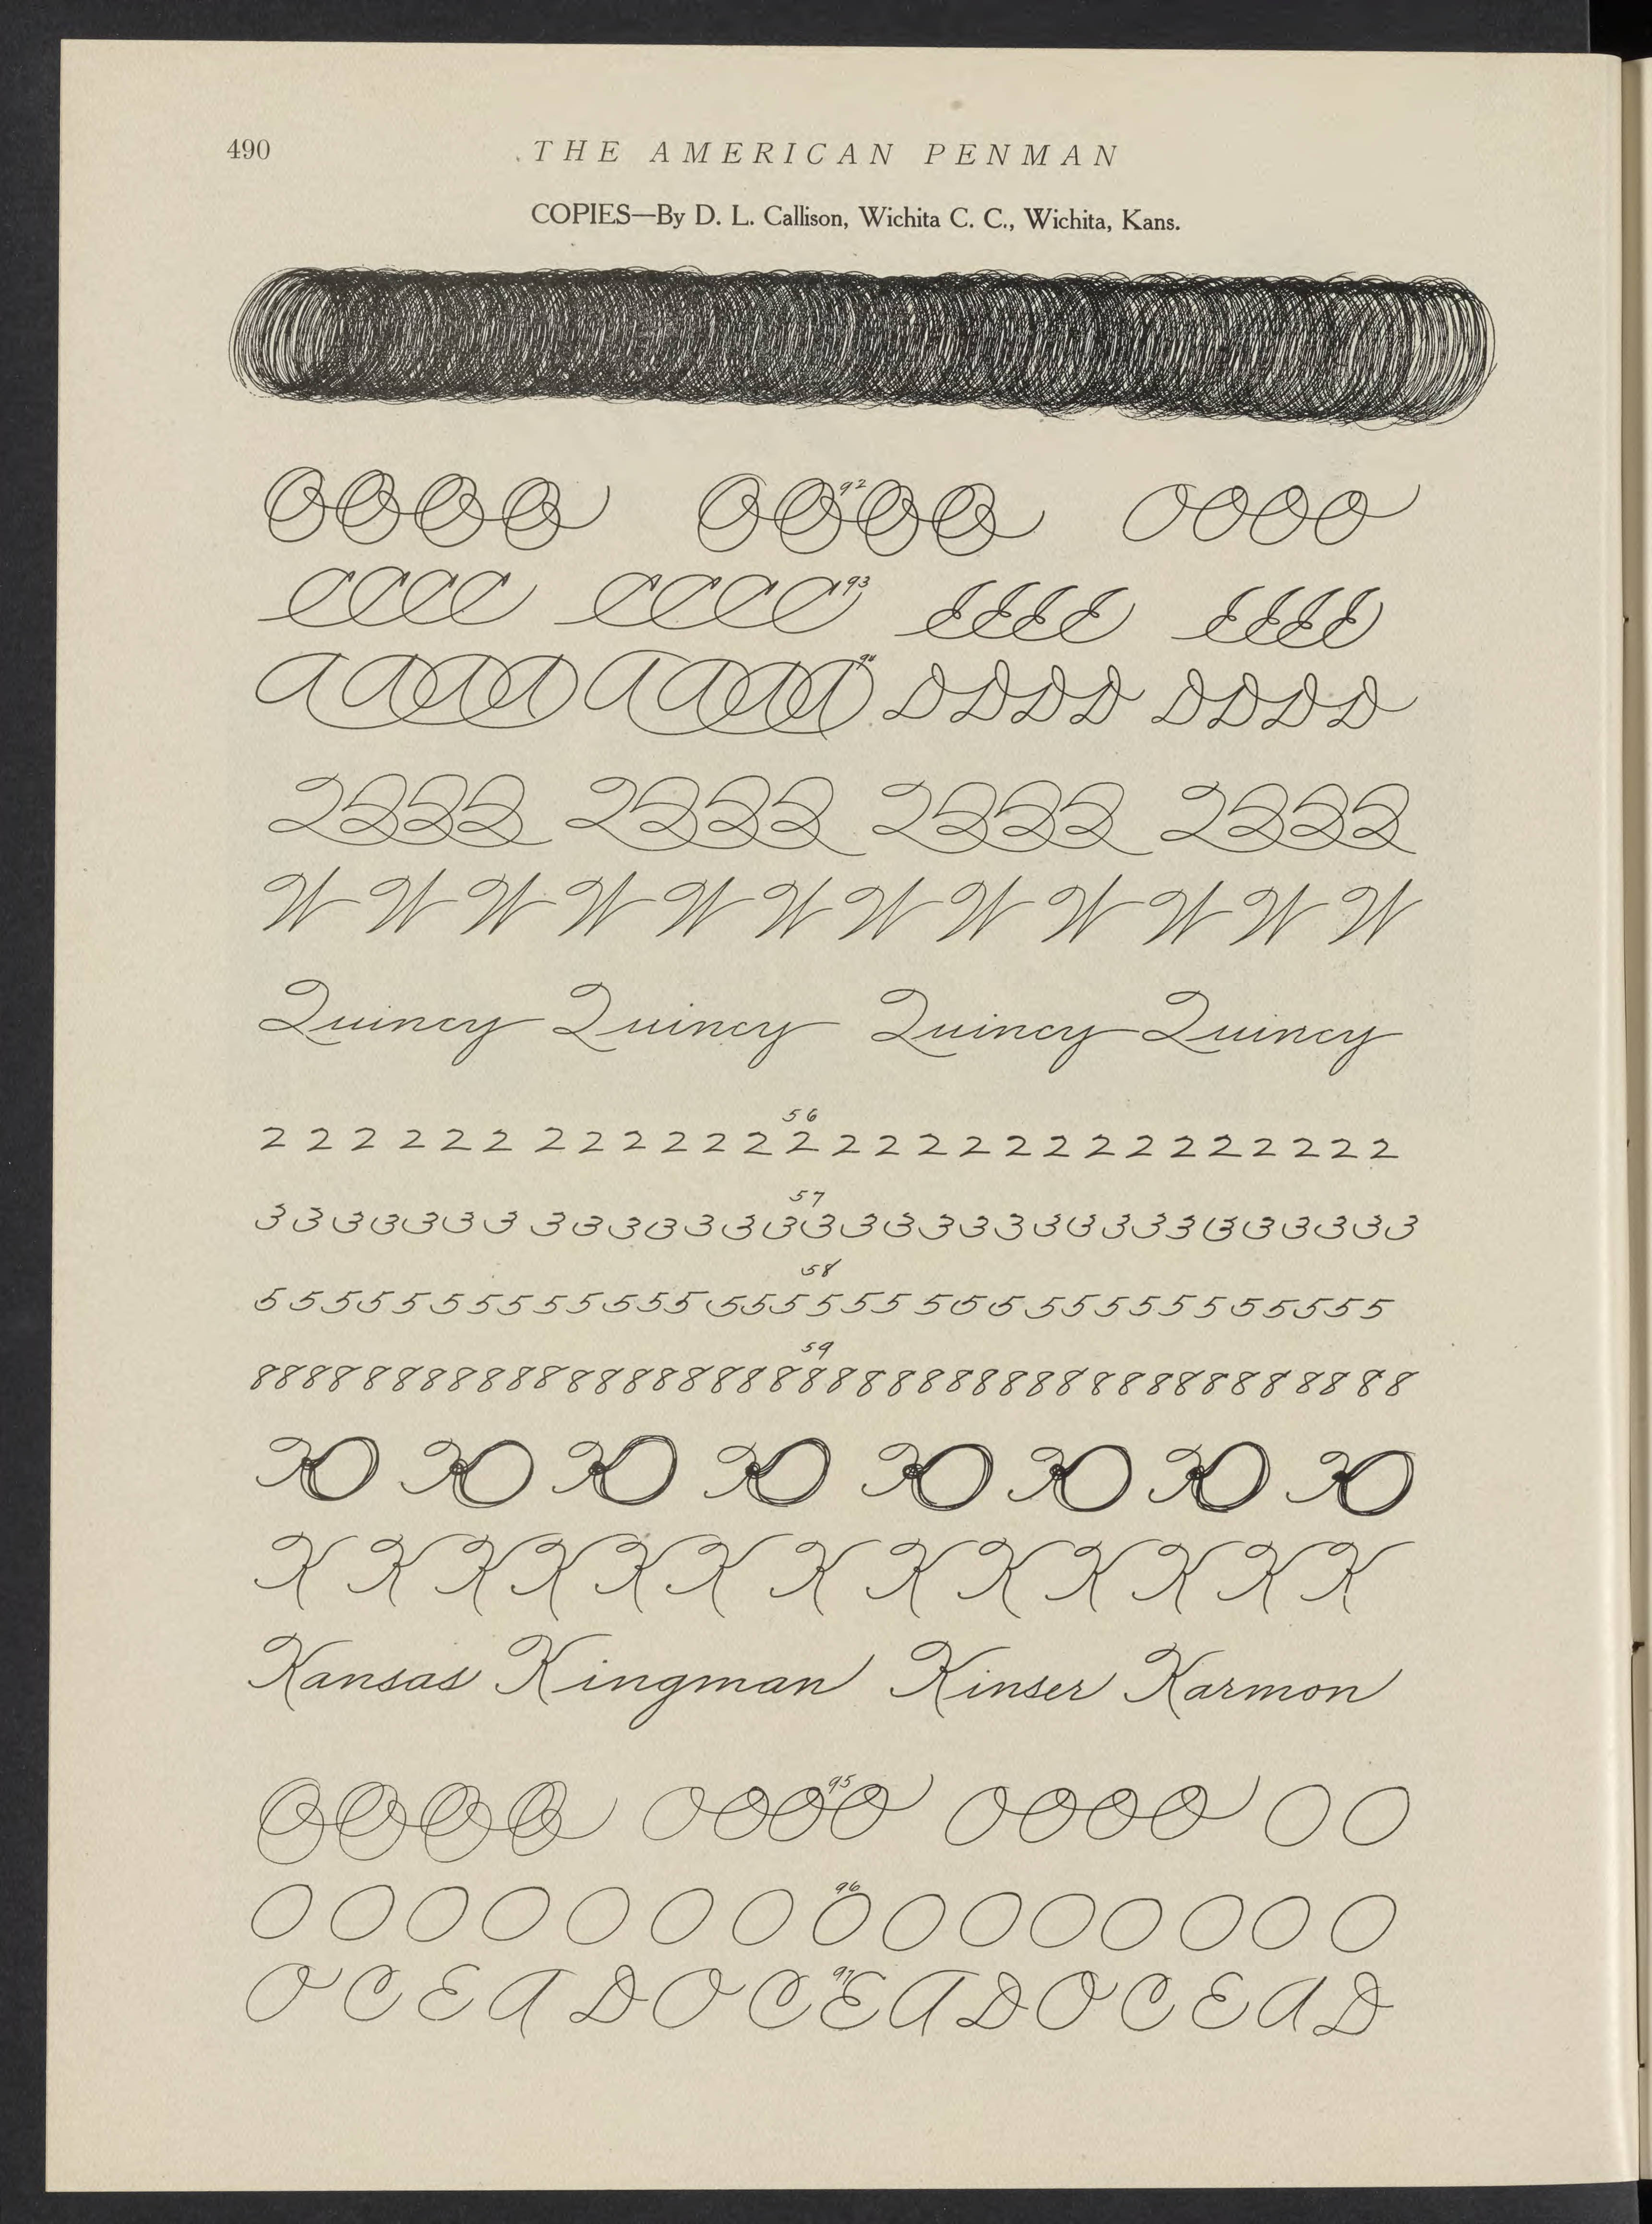 490 THE AMERICAN PENMAN
COPIES—By D. L. Callison, Wichita C. C., Wichita, Kans.
92
O O O O O O O O O O O O
93
C C C C C C C C E E E E E E E E
94
A A A A A A A A D D D D D D D D
Q Q Q Q Q Q Q Q Q Q Q Q Q Q Q Q
W W W W W W W W W W W W
Quincy Quincy Quincy Quincy
56
2 2 2 2 2 2 2 2 2 2 2 2 2 2 2 2 2 2 2 2 2 2 2 2 2 2 2
57
3 3 3 3 3 3 3 3 3 3 3 3 3 3 3 3 3 3 3 3 3 3 3 3 3 3 3 3 3 3 3
58
5 5 5 5 5 5 5 5 5 5 5 5 5 5 5 5 5 5 5 5 5 5 5 5 5 5 5 5 5 5 5 5
59
8 8 8 8 8 8 8 8 8 8 8 8 8 8 8 8 8 8 8 8 8 8 8 8 8 8 8 8 8 8 8 8 8 8 8 8 8 8 8 8
K K K K K K K K K K K K K
Kansas Kingman Kinser Karmon
95
O O O O O O O O O O O O O O
96
O O O O O O O O O O O O O O O
97
O C E A D O C E A D O C E A D